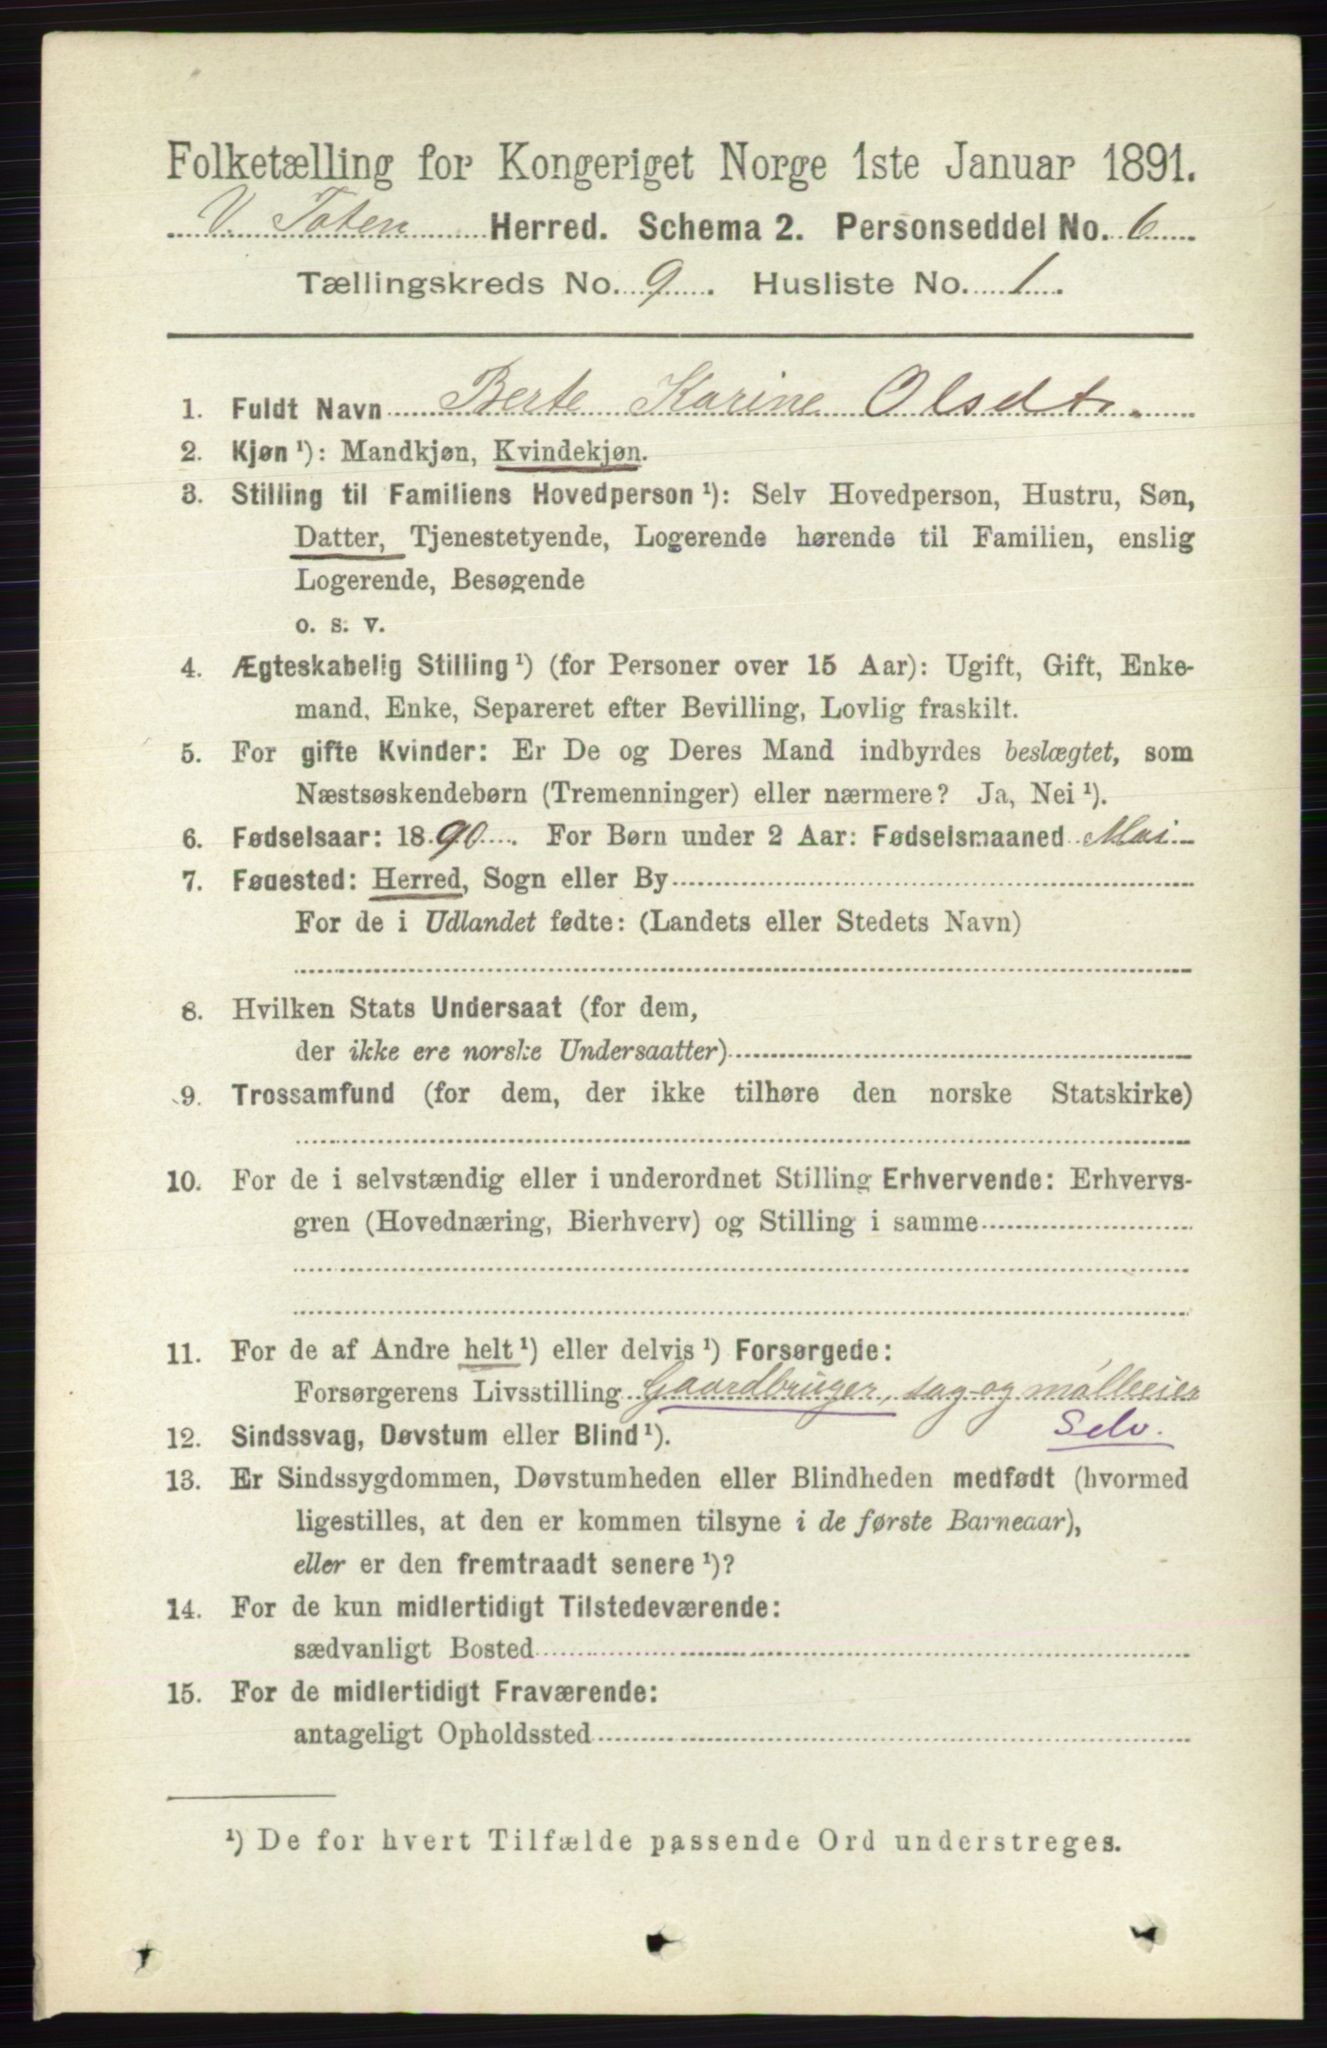 Folketælling for Kongeriget Norge 1ste Januar 1891.
V. Toten Herred. Schema 2. Personseddel No. 6
Tællingskreds No. 9. Husliste No. 1.
1. Fuldt Navn Berte Karine Olsdt.
2. Kjøn ¹): Mandkjøn, Kvindekjøn.
3. Stilling til Familiens Hovedperson ¹): Selv Hovedperson, Hustru, Søn,
Datter, Tjenestetyende, Logerende hørende til Familien, enslig
Logerende, Besøgende
o. s. v.
4. Ægteskabelig Stilling ¹) (for Personer over 15 Aar): Ugift, Gift, Enke-
mand, Enke, Separeret efter Bevilling, Lovlig fraskilt.
5. For gifte Kvinder: Er De og Deres Mand indbyrdes beslægtet, som
Næstsøskendebørn (Tremenninger) eller nærmere? Ja, Nei ¹).
6. Fødselsaar: 1890. For Børn under 2 Aar: Fødselsmaaned Mai
7. Fødested: Herred, Sogn eller By
For de i Udlandet fødte: (Landets eller Stedets Navn)
8. Hvilken Stats Undersaat (for dem,
der ikke ere norske Undersaatter)
9. Trossamfund (for dem, der ikke tilhøre den norske Statskirke)
10. For de i selvstændig eller i underordnet Stilling Erhvervende: Erhvervs-
gren (Hovednæring, Bierhverv) og Stilling i samme
11. For de af Andre helt ¹) eller delvis ¹) Forsørgede:
Forsørgerens Livsstilling Gaardbruger, sag og mølleeier
Selv.
12. Sindssvag, Døvstum eller Blind ¹).
13. Er Sindssygdommen, Døvstumheden eller Blindheden medfødt (hvormed
ligestilles, at den er kommen tilsyne i de første Barneaar),
eller er den fremtraadt senere ¹)?
14. For de kun midlertidigt Tilstedeværende:
sædvanligt Bosted
15. For de midlertidigt Fraværende:
antageligt Opholdssted
¹) De for hvert Tilfælde passende Ord understreges.